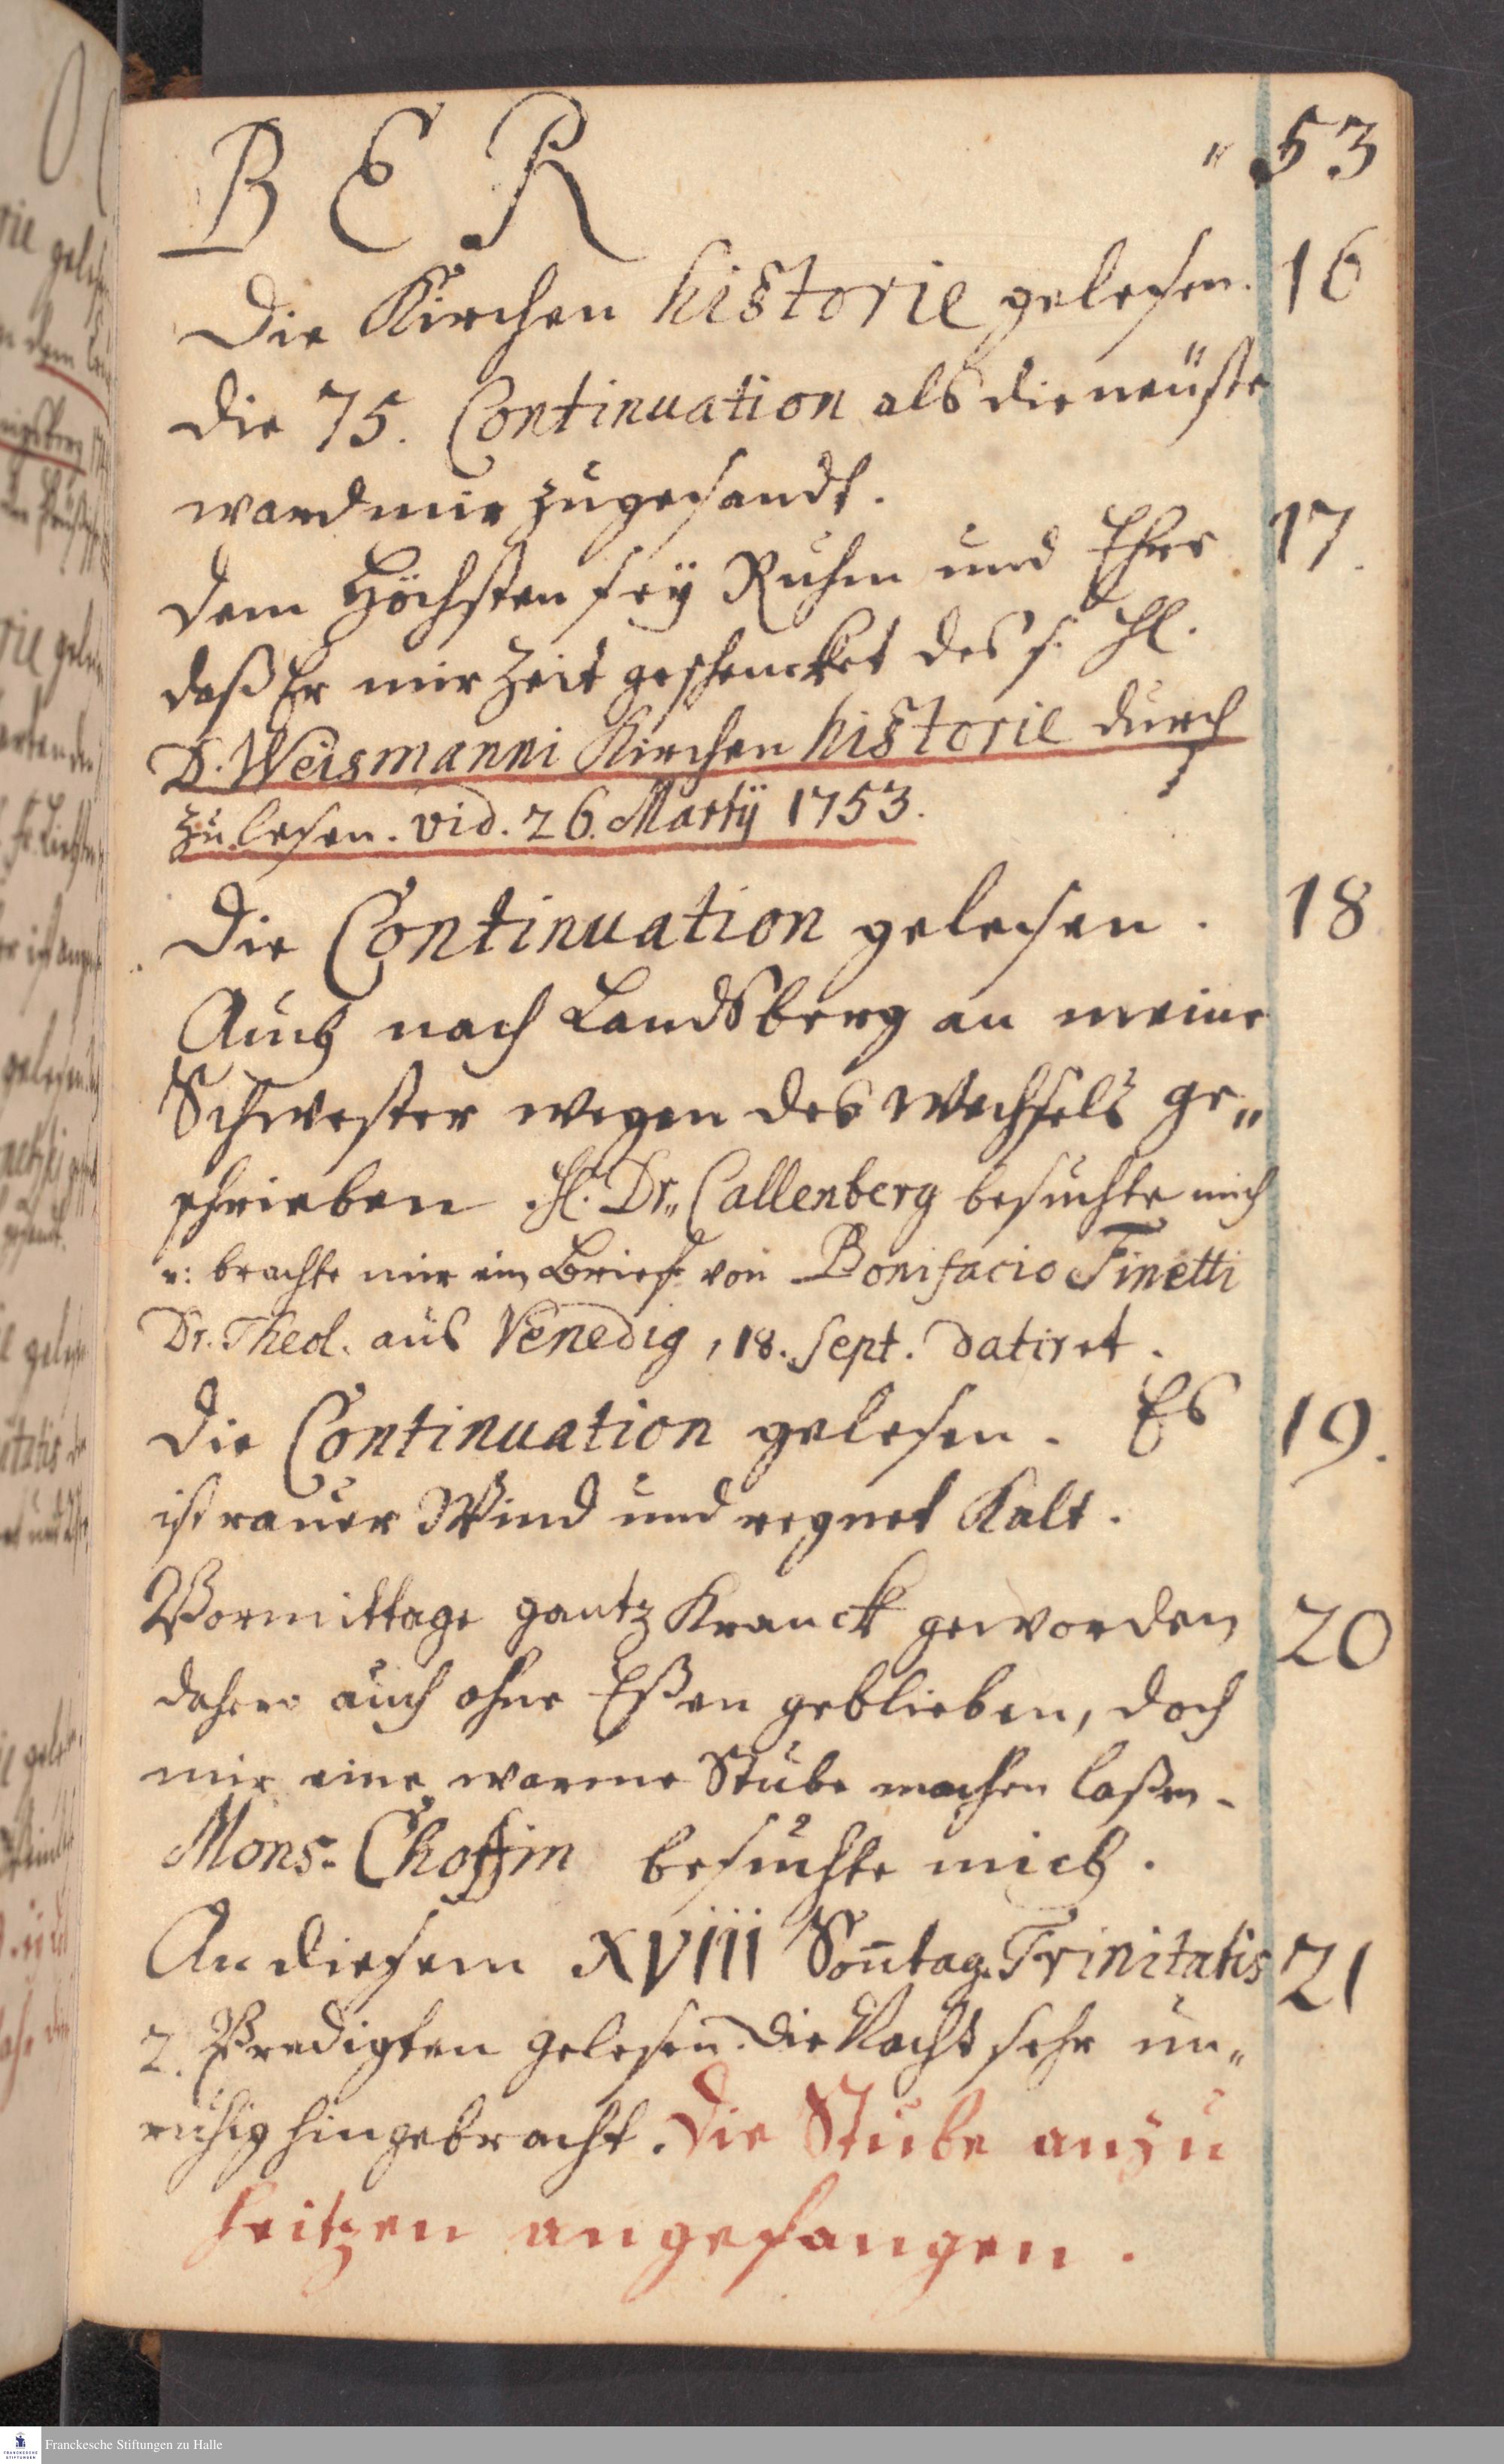 BER „ 53
Die Kirchen historie gelesen. 16
die 75. Continuation als die neüste
ward mir zugesandt.
dem Höchsten seÿ Ruhm und Ehre 17.
daß Er mir Zeit geschencket des s. Hl.
D. Weismanni Kirchen historie durch
zu lesen. vid. 26. Martÿ 1753.
Die Continuation gelesen. 18
Auch nach Landsberg an meine
Schwester wegen des Wechsels ge„
schrieben. Hl. Dr. Callenberg besuchte mich
u: brachte mir ein Brief von Bonifacio Finetti
Dr. Theol. aus Venedig, 18. Sept. datiret.
die Continuation gelesen. Es 19.
ist rauer Wind und regnet Kalt.
Vormittage gantz Kranck geworden 20
dahero auch ohne Eßen geblieben, doch
mir eine warme Stube machen laßen.
Mons: Choffin besuchte mich.
An diesem XVIII Soñtag. Trinitatis 21
2. Predigten gelesen. Die Nacht sehr un„
ruhig hingebracht. Die Stube anzu
heitzen angefangen.
Franckesche Stiftungen zu Halle